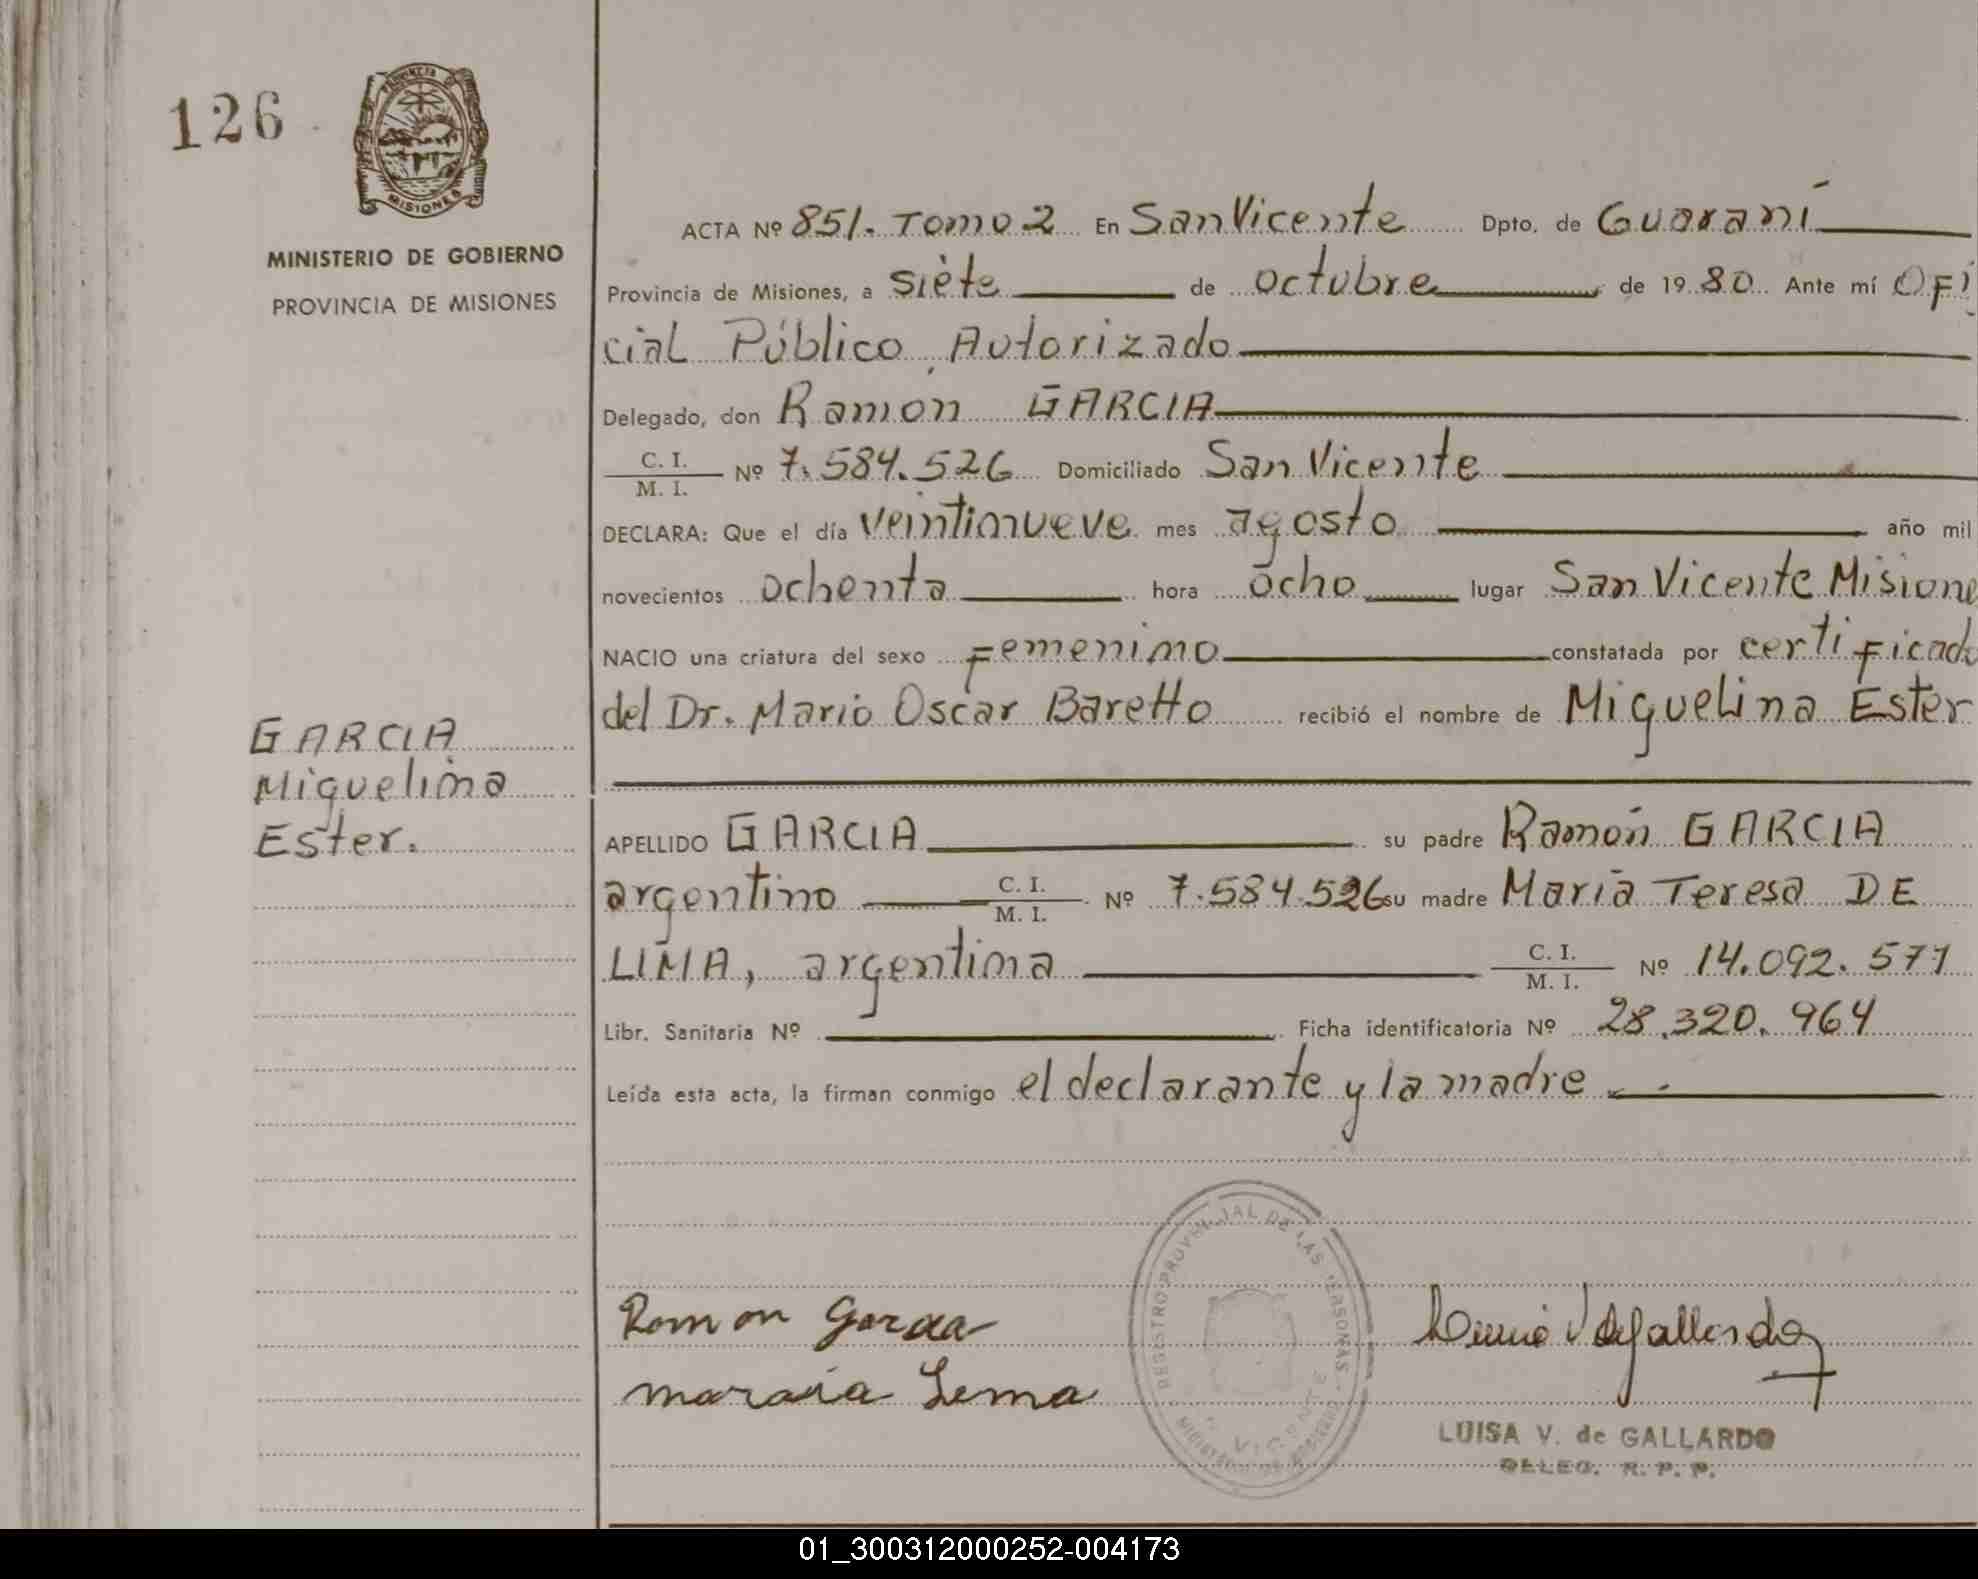 126
PROVINCIA DE
MISIONES
MINISTERIO DE GOBIERNO
PROVINCIA DE MISIONES
GARCIA
Miguelina
Ester.
ACTA Nº 851. Tomo 2 En San Vicente Dpto. de Guaraní
Provincia de Misiones, a siete de octubre de 1980 Ante mí Ofi
cial Público Autorizado
Delegado, don Ramón GARCIA
C. I. / M. I. Nº 7.584.526 Domiciliado San Vicente
DECLARA: Que el día veintinueve mes agosto año mil
novecientos ochenta hora ocho lugar San Vicente Misione
NACIO una criatura del sexo Femenino constatada por certificado
del Dr. Mario Oscar Baretto recibió el nombre de Miguelina Ester
APELLIDO GARCIA su padre Ramón GARCIA
argentino C. I. / M. I. Nº 7.584.526 su madre María Teresa DE
LIMA, argentina C. I. / M. I. Nº 14.092.571
Libr. Sanitaria Nº Ficha identificatoria Nº 28.320.964
Leída esta acta, la firman conmigo el declarante y la madre
REGISTRO PROVINCIAL DE LAS PERSONAS
MINISTERIO DE GOBIERNO
S. VICENTE
Ramon Garcia
maraia Lema
LUISA V. de GALLARDO
DELEG. R. P. P.
01_300312000252-004173